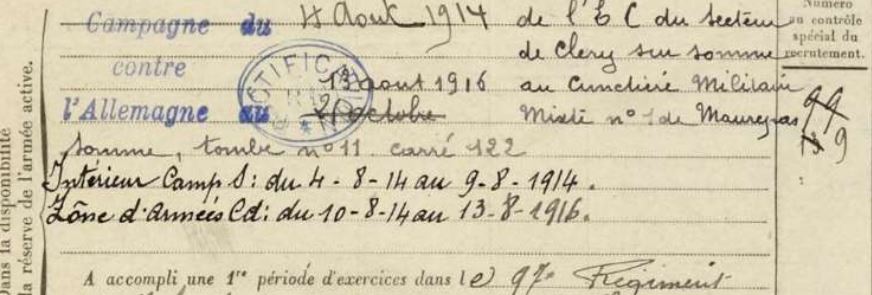 Numéro
au contrôle
spécial du
recrutement.
Dans la disponibilité
la réserve de l'armée active.
Campagne du 4 Aout 1914 de l'E C du secteur
de Clery sur somme
contre 13 aout 1916 au Cimetière Militaire
l'Allemagne au octobre Mixte n° 1 de Maurepas
somme, tombe n° 11 carré 122
Intérieur Camp S: du 4-8-14 au 9-8-1914.
Zône d'Armées Cd: du 10-8-14 au 13-8-1916.
A accompli une 1re période d'exercices dans le 97e Régiment